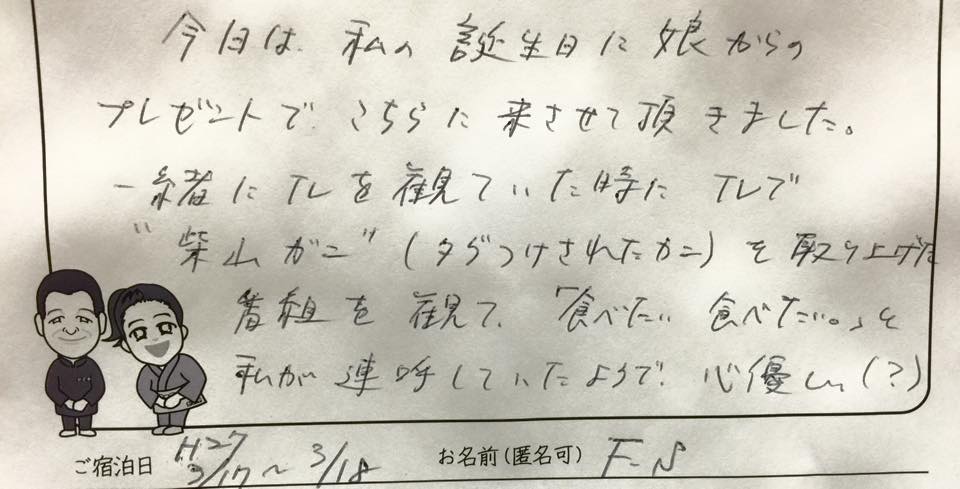 今日は、私の誕生日に娘からの
プレゼントで、こちらに来させて頂きました。
一緒にTVを観ていた時にTVで
"柴山ガニ"(タグつけされたカニ)を取り上げた
番組を観て、「食べたい 食べたい。」と
私が連呼していたようで、心優しい(?)
ご宿泊日 H27 3/17~3/18 お名前(匿名可) F-N